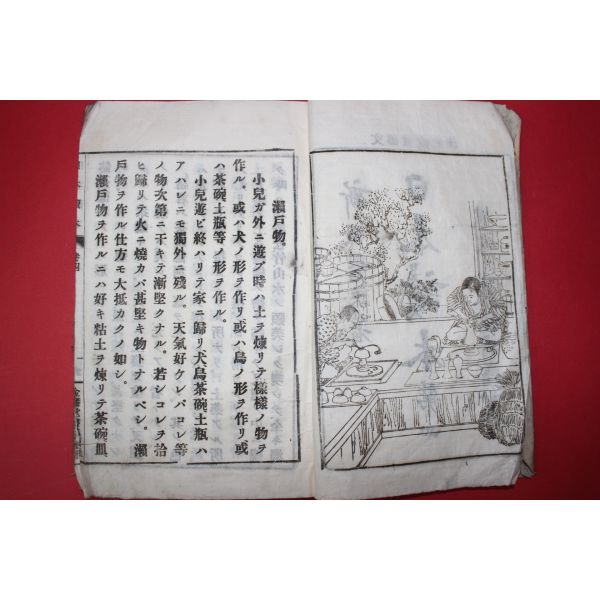 瀨戸物。
小兒ガ外ニ遊ブ時ハ土ヲ煉リテ樣樣ノ物ヲ
作ル。或ハ犬ノ形ヲ作リ或ハ鳥ノ形ヲ作リ或
ハ茶碗土瓶等ノ形ヲ作ル。
小兒遊ビ終ハリテ家ニ歸リ犬鳥茶碗土瓶ハ
アハレニモ獨外ニ殘ル。天氣好ケレバコレ等
ノ物次第ニ干キテ漸堅クナル。若シコレヲ拾
ヒ歸リテ火ニ燒カバ甚堅キ物トナルベシ。瀨
戸物ヲ作ル仕方モ大抵カクノ如シ。
瀨戸物ヲ作ルニハ好キ粘土ヲ煉リテ茶碗皿